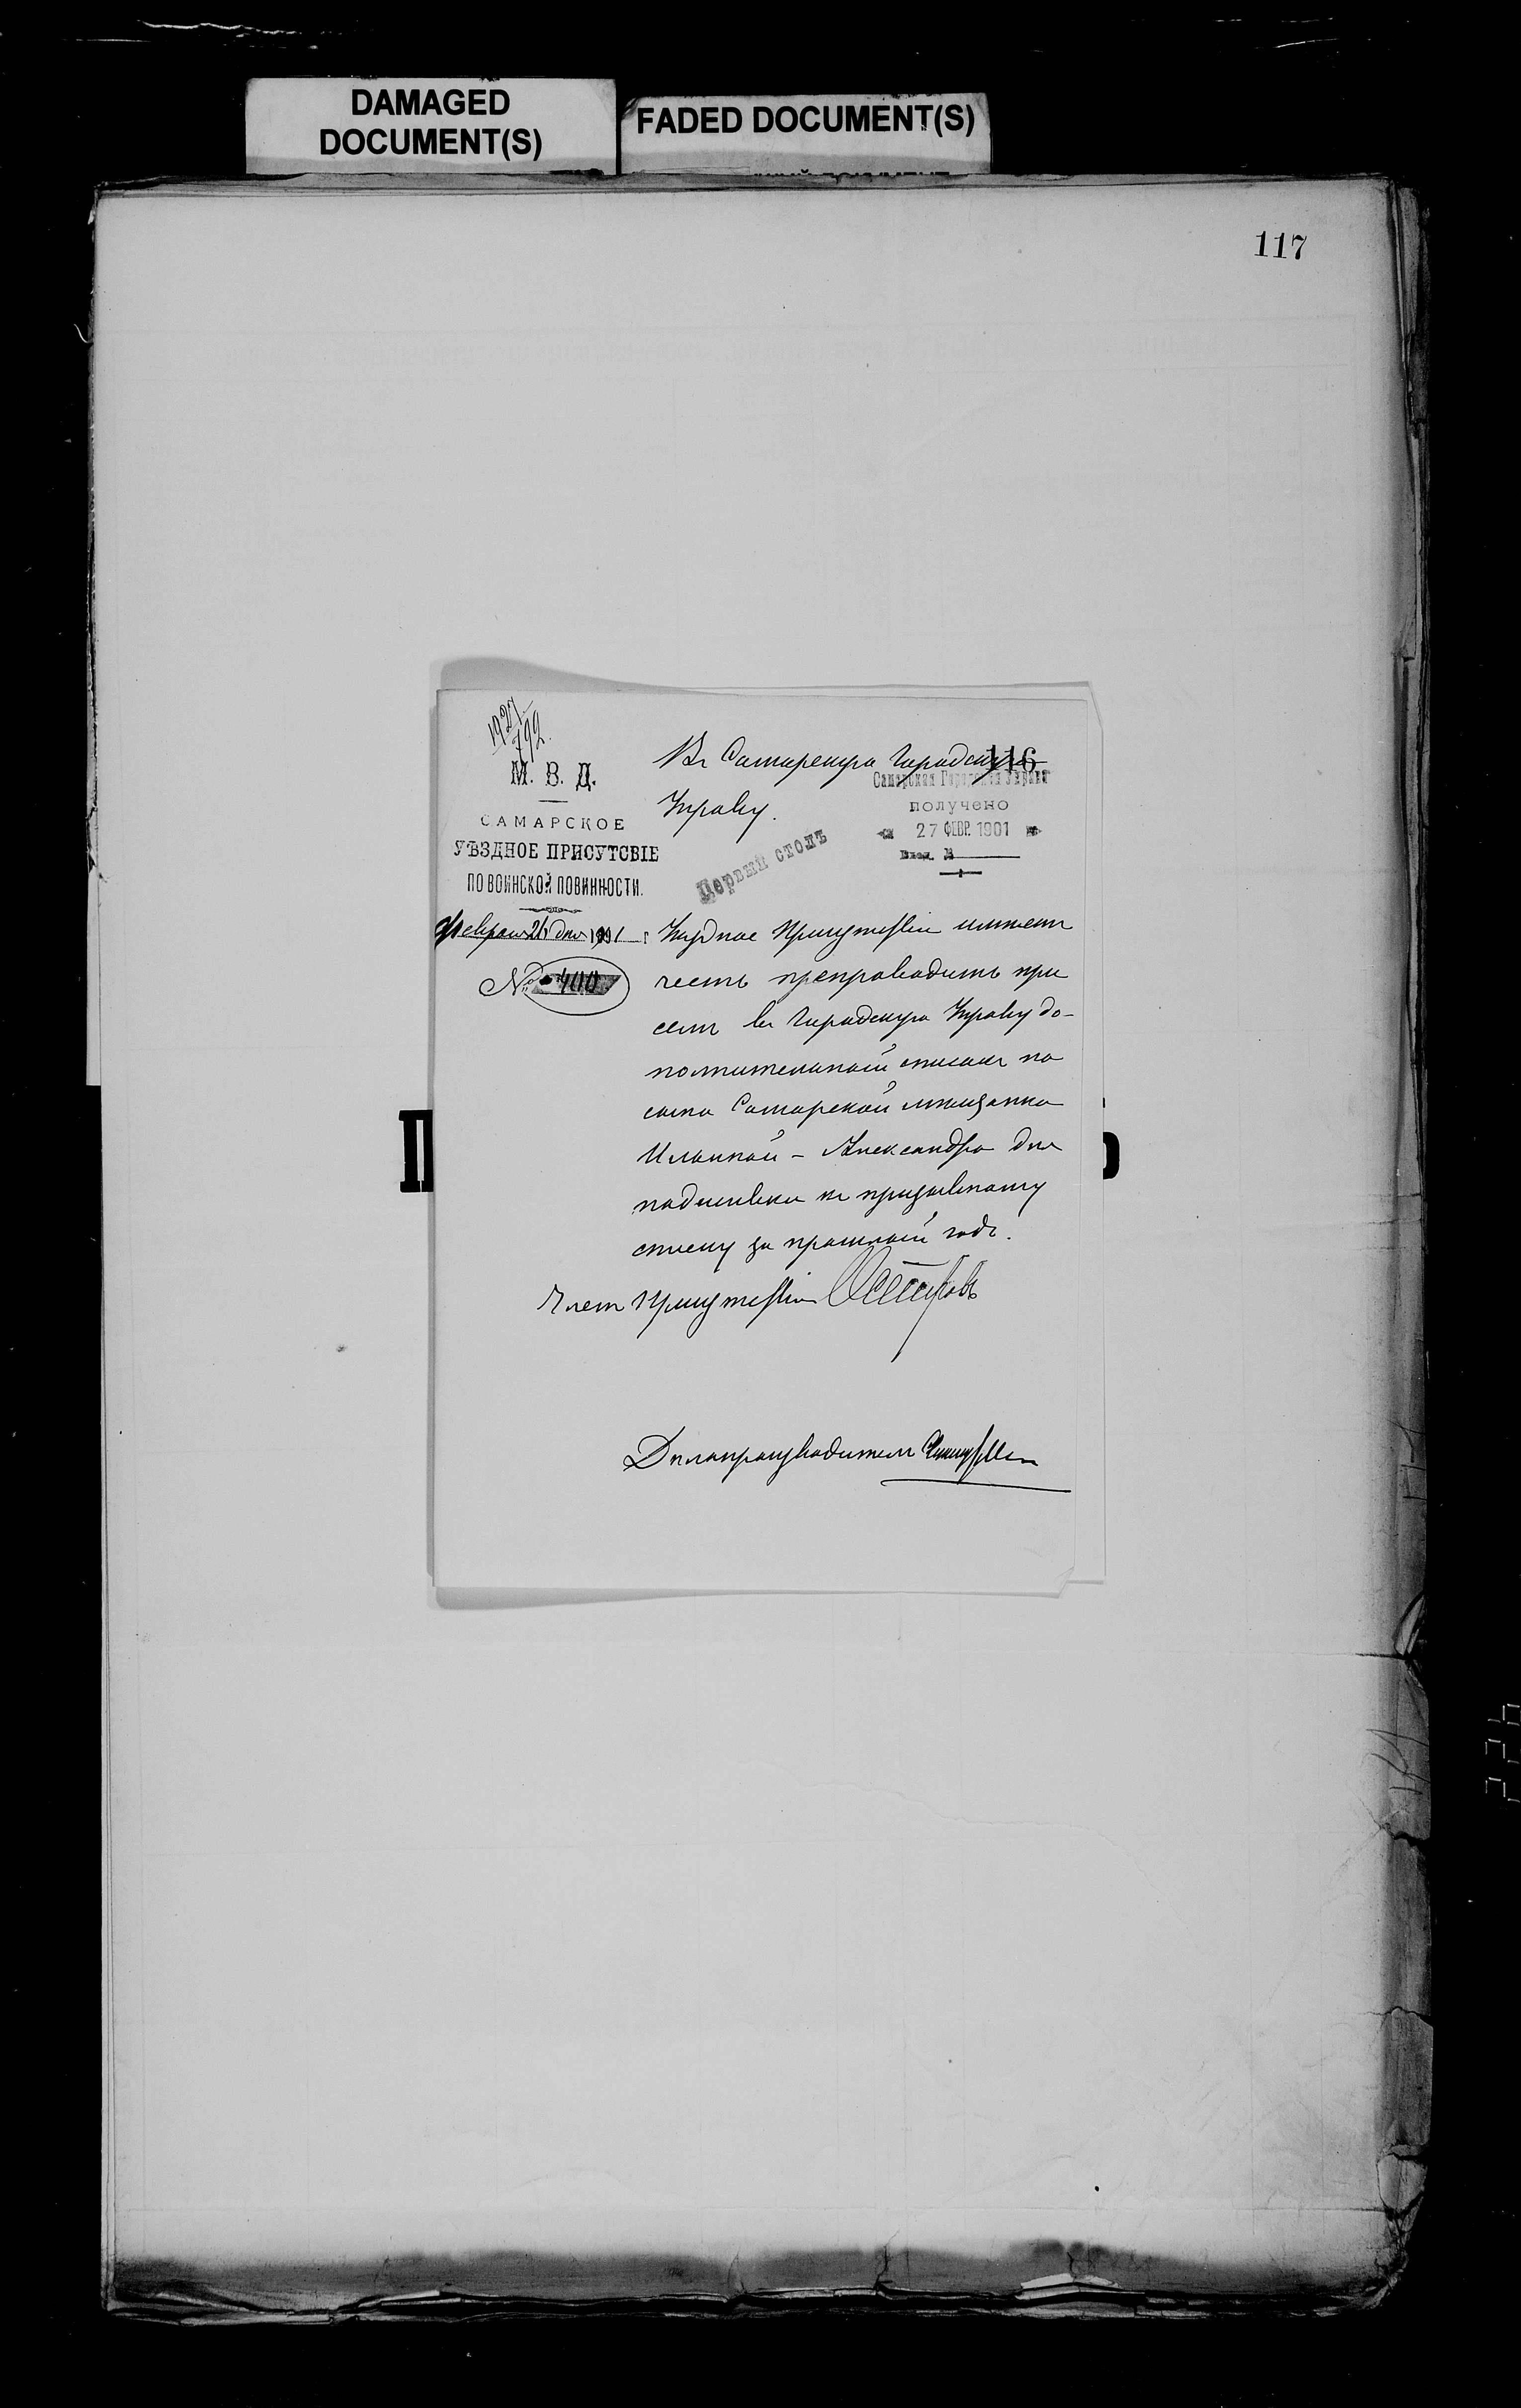 DAMAGED
DOCUMENT(S)
FADED DOCUMENT(S)
117
116
М. В. Д.
САМАРСКОЕ
УѢЗДНОЕ ПРИСУТСВІЕ
ПО ВОИНСКОЙ ПОВИННОСТИ.
Февраля 26 дня 1901 г
№ 400
Въ Самарскую Городскую
Управу.
Самарская Городская Управа
получено
27 ФЕВР. 1901
Вход. №
Первый столъ
Уѣздное Присутствіе имѣетъ
честь препроводить при
семъ въ Городскую Управу до-
полнительный списокъ на
сына Самарской мѣщанки
Александра для
подшивки къ призывному
списку за прошлый годъ.
Членъ Присутствія
Дѣлопроизводитель